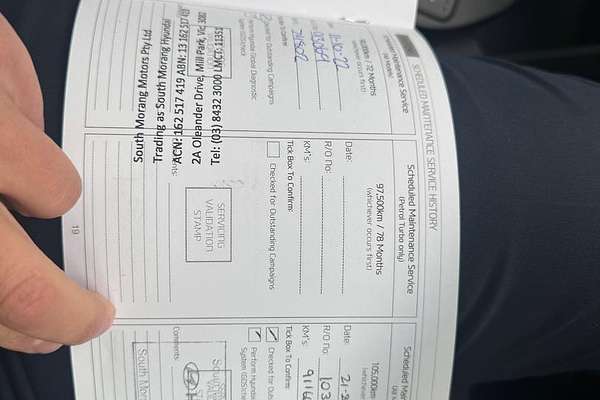 SCHEDULED MAINTENANCE SERVICE HISTORY
Scheduled Maintenance Service
(All Models)
90,000km / 72 Months
(whichever occurs first)
KM's:
Tick Box To Confirm
Checked for Outstanding Campaigns
Perform Hyundai Global Diagnostic
System (GDS) check
South Morang Motors Pty Ltd
Trading as South Morang Hyundai
ACN: 162 517 419 ABN: 13 162 517 419
2A Oleander Drive, Mill Park, Vic 3082
Tel: (03) 8432 3000 LMCT: 11351
Scheduled Maintenance Service
(Petrol Turbo only)
97,500km / 78 Months
(whichever occurs first)
Date:
R/O no:
KM's:
Tick Box To Confirm
Checked for Outstanding Campaigns
SERVICING
VALIDATION
STAMP
Scheduled Mai
105,000km
(whichever
Date: 21-2
R/O no: 103
KM's: 9116
Tick Box To Confirm
Checked for Out
Perform Hyundai
System (GDS) che
Comments:
South Mor
19